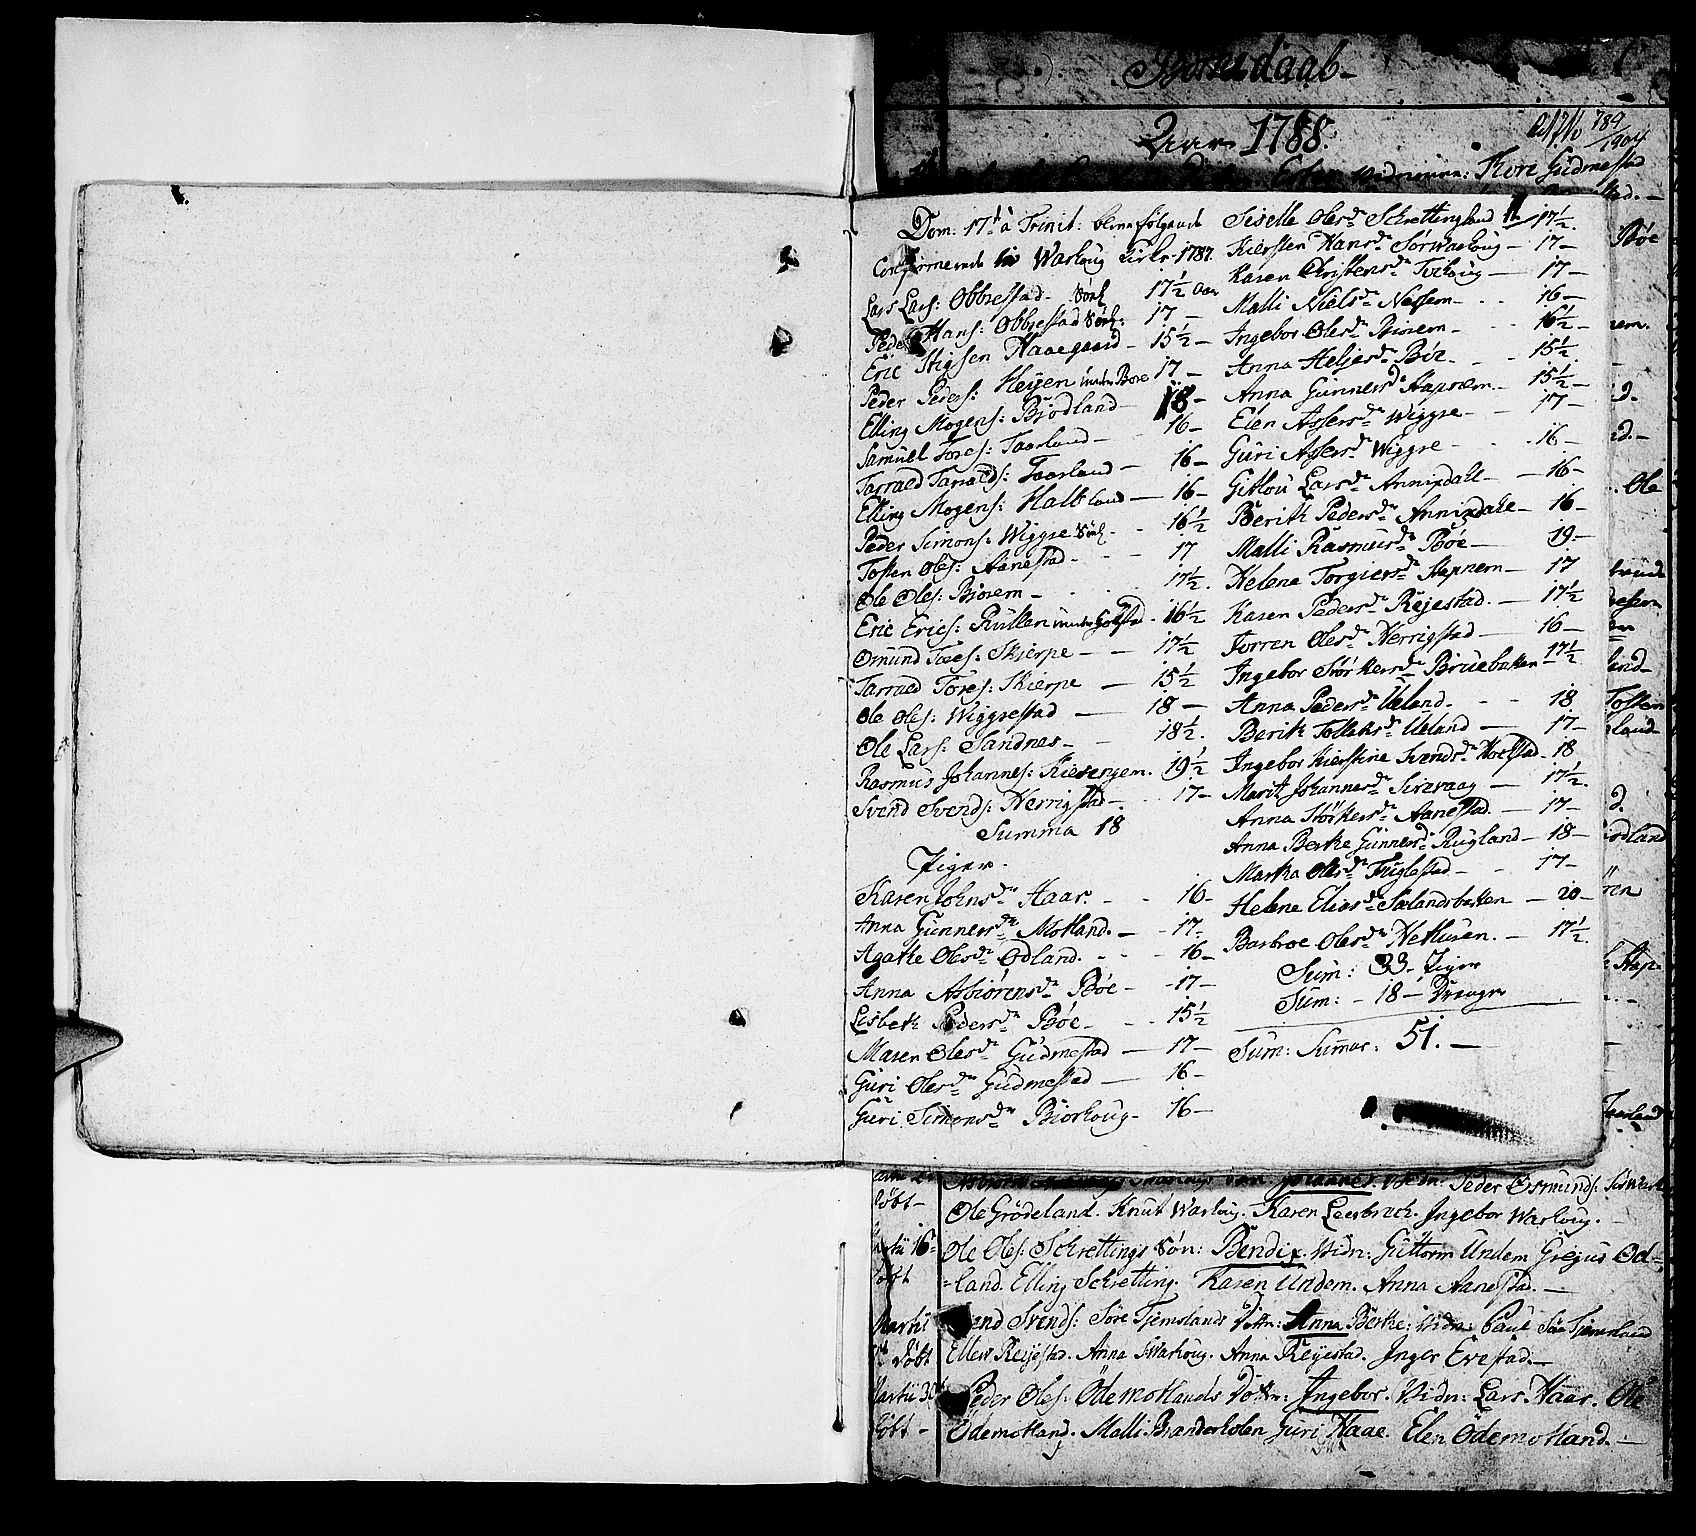 Barnedaab
Aar 1788.
789/1904
Vidnerne: Thore Gudmestad
Dom: 17de à Trinit: blev følgende
Confirmerede Warhoug Kirke 1787.
Lars Lars: Obbrestad Sönl 17½ Aar
Peder Hans: Obbrestad Sönl: 17 –
Eric Stigsen Haaegaard – 15½ –
Peder Peders: Heyen under Bore 17 –
Elling Mogens: Biödland – 18 –
Samuel Tores: Taarland – 16 –
Tarraed Tarraeds: Taarland – 16 –
Elling Mogens: Halbland – 16 –
Peder Simons: Wiggre Sönl 16½
Tosten Oles: Aanestad 17
Ole Oles: Biorem 17½.
Eric Erics: Rullen under Golstad 16½
Omund Tores: Skierpe 17½
Tarraed Tores: Skierpe – 15½
Ole Oles: Wiggrestad – 18 –
Ole Lars: Sandnes – 18½.
Rasmus Johannes: Kiersengem. 19½
Svend Svends: Herrigstad – 17 –
Summa 18
Piger.
Karen Johnsdr Haar. 16 –
Anna Gunnersdr Motland. – 17
Agathe Olesdr Ödland. 16 –
Anna Asbiörensdr Böe – 17 –
Lisbeth Pedersdr Böe – 15½
Maren Olesdr Gudmestad – 17 –
Guri Olesdr Gudmestad – 16 –
Guri Simonsdr Biorhoug – 16 –
Siselle Olesdr Schrettingland – 17½.
Kiersten Hansdr Sörwarhoug – 17 –
Karen Christensdr Tvihoug – 17 –
Malli Nielsdr Nessem – 16 –
Ingebor Olesdr Biorem – 16½ –
Anna Heljesdr Böe 15½.
Anna Gunnersdr Hapnem – 15½ –
Elen Assersdr Wiggre – 17 –
Guri Assersdr Wiggre – 16 –
Gitlou Larsdr Annixdall – 16 –
Berith Pedersdr Annixdahl – 16 –
Malli Rasmusdr Böe – 19 –
Helene Torgiersdr Hapnem – 17
Karen Pedersdr Reyestad. – 17½
Torren Olesdr Herrigstad – 16 –
Ingebor Störkersdr Bruebakken – 17½
Anna Pedersdr Ueland. 18
Berith Tollaksdr Ueland – 17 –
Ingebor Kierstine Svendsdr Hoelstad 18
Marit Johannesdr Sirevaag – 17½.
Anna Störkersdr Aanestad. – 17 –
Anna Berthe Gunnersdr Rugland – 18 –
Martha Olesdr Fuglestad – 17 –
Helene Eliasdr Sælandsbakken – 20 –
Barbroe Olesdr Nethusen. – 17½.
Sum: 33 – Piger
Sum: – 18 – Drenge
Sum: Sumar: 51. –
Johannes. Vidn: Peder Osmunds:
Döbt – Ole Grödeland. Knut Warhoug. Karen Leerbrech. Ingebor Warhoug.
16 Ole Oles: Schrettings Sön: Bendix. Vidn: Guttorm Undem Gregus Öd-
land. Elling Schretting. Karen Undem. Anna Aanestad. –
Martii Svend Svends: Söre Tiemslands Dotter: Anna Berthe: Vidn: Paul Söre Tiemsland
Döbt Ellen Reyestad. Anna Warhoug. Anna Reyestad. Inger Evestad. –
Martii 30 Peder Oles: Ödemotlands Dotter: Ingebor. Vidn: Lars Haar. Ole
Döbt – Ödemotland. Malli Brænderholen Guri Haae. Elen Ödemotland. –